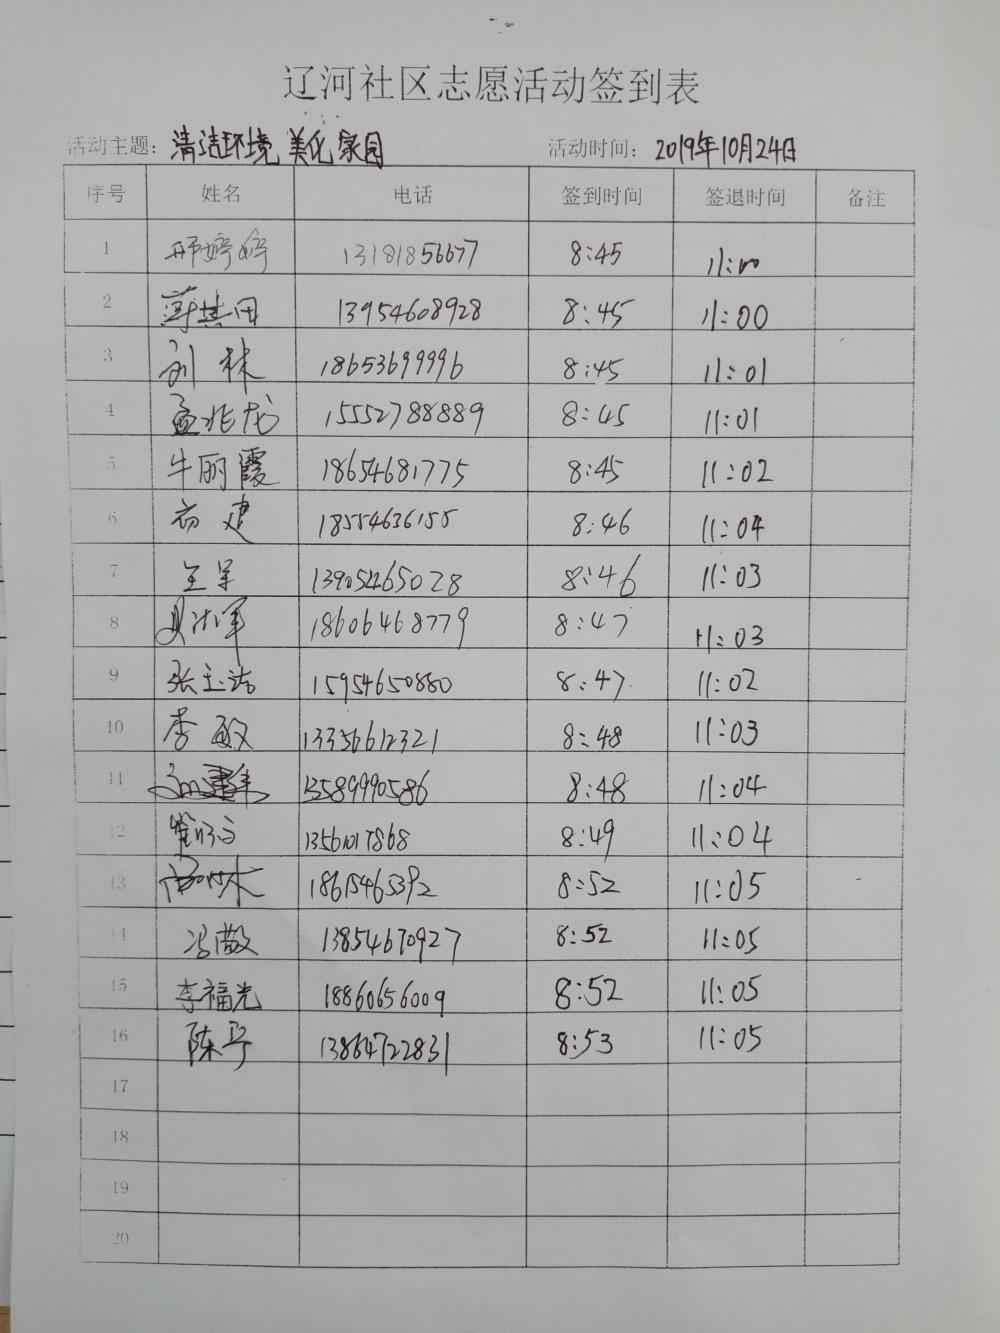 辽河社区志愿活动签到表
活动主题：清洁环境 美化家园 活动时间：2019年10月24日
序号 姓名 电话 签到时间 签退时间 备注
1 邢婷婷 13181856677 8:45 11:00
2 蒋其田 13954608928 8:45 11:00
3 刘林 18653699996 8:45 11:01
4 孟兆龙 15552788889 8:45 11:01
5 牛丽霞 18654681775 8:45 11:02
6 建 18554636155 8:46 11:04
7 13905465028 8:46 11:03
8 18606468779 8:47 11:03
9 张玉洁 15954650880 8:47 11:02
10 李敏 13356612321 8:48 11:03
11 13589990586 8:48 11:04
12 13561017868 8:49 11:04
13 18615465392 8:52 11:05
14 冯敬 13854670927 8:52 11:05
15 李福光 18860656009 8:52 11:05
16 陈 13864722831 8:53 11:05
17
18
19
20